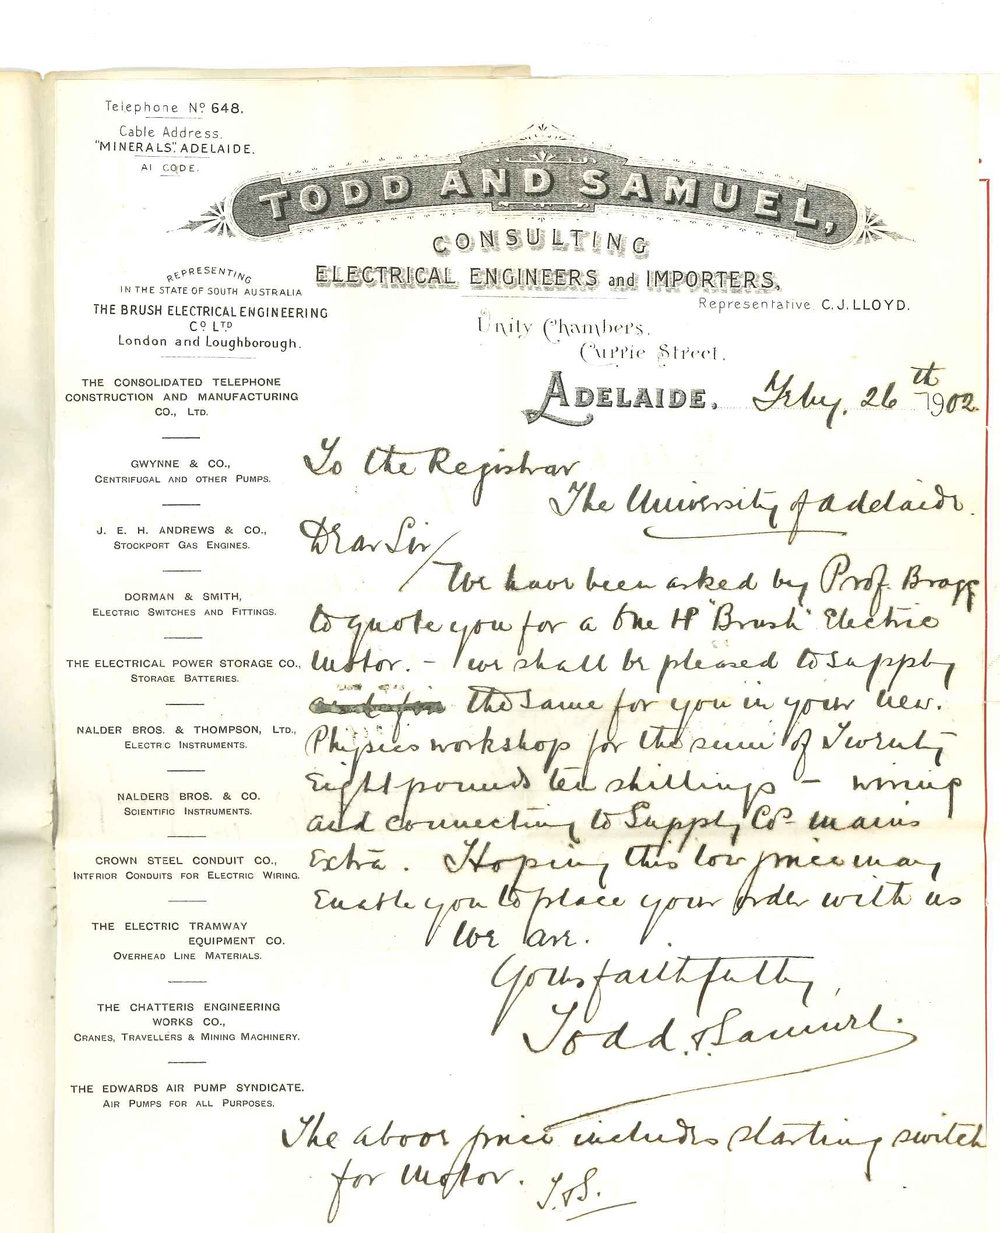 Telephone Nº 648.
Cable Address.
"MINERALS", ADELAIDE.
A1 CODE.
TODD AND SAMUEL,
CONSULTING
ELECTRICAL ENGINEERS and IMPORTERS,
Representative C. J. LLOYD.
Unity Chambers,
Currie Street,
ADELAIDE, Feby. 26th 1902
REPRESENTING
IN THE STATE OF SOUTH AUSTRALIA
THE BRUSH ELECTRICAL ENGINEERING
Cº LTD
London and Loughborough.
THE CONSOLIDATED TELEPHONE
CONSTRUCTION AND MANUFACTURING
CO., LTD.
GWYNNE & CO.,
CENTRIFUGAL AND OTHER PUMPS.
J. E. H. ANDREWS & CO.,
STOCKPORT GAS ENGINES.
DORMAN & SMITH,
ELECTRIC SWITCHES AND FITTINGS.
THE ELECTRICAL POWER STORAGE CO.,
STORAGE BATTERIES.
NALDER BROS. & THOMPSON, LTD.,
ELECTRIC INSTRUMENTS.
NALDERS BROS. & CO.
SCIENTIFIC INSTRUMENTS.
CROWN STEEL CONDUIT CO.,
INTERIOR CONDUITS FOR ELECTRIC WIRING.
THE ELECTRIC TRAMWAY
EQUIPMENT CO.
OVERHEAD LINE MATERIALS.
THE CHATTERIS ENGINEERING
WORKS CO.,
CRANES, TRAVELLERS & MINING MACHINERY.
THE EDWARDS AIR PUMP SYNDICATE.
AIR PUMPS FOR ALL PURPOSES.
To the Registrar
The University of Adelaide.
Dear Sir/
We have been asked by Prof. Bragg
to quote you for a One HP "Brush" Electric
Motor. – We shall be pleased to supply
the same for you in your new.
Physics workshop for the sum of Twenty
Eight pounds ten shillings – wiring
and connecting to Supply Co's mains
Extra. Hoping this low price may
Enable you to place your order with us
We are.
Yours faithfully,
Todd & Samuel.
The above price includes starting switch
for Motor. T.&S.